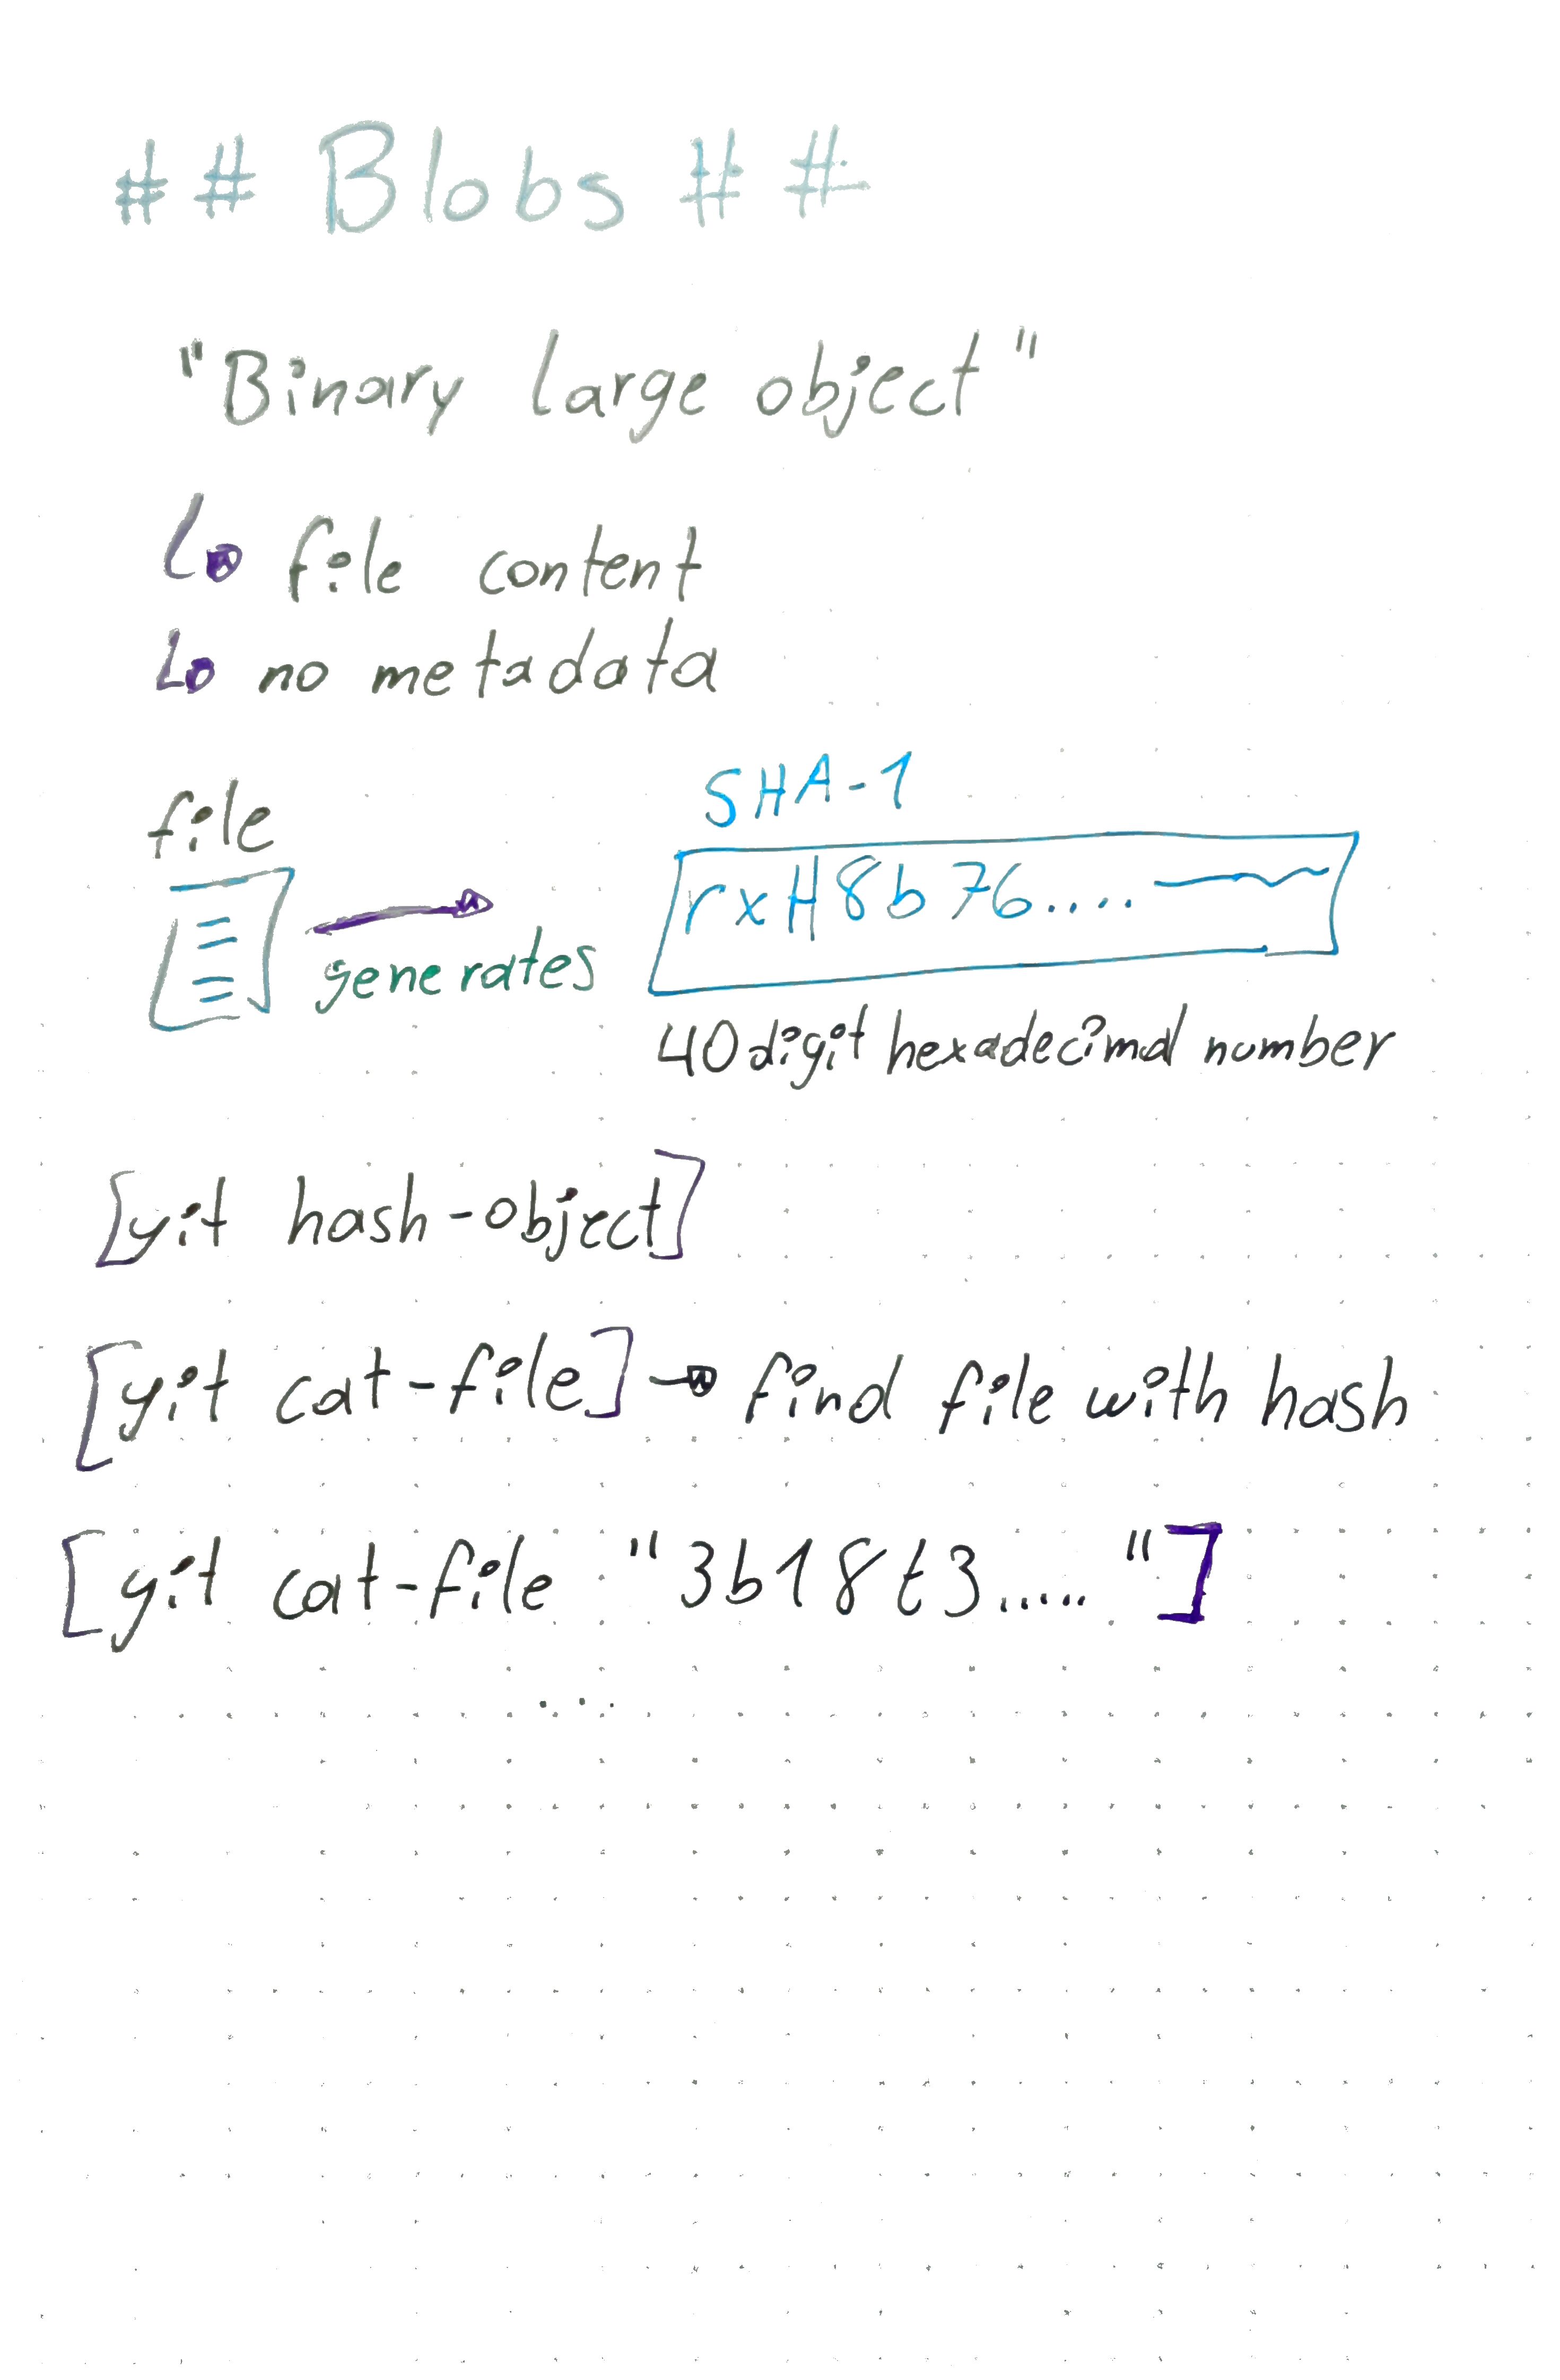 # # Blobs # #
"Binary large object"
file content
no metadata
file
SHA-1
rxH8b76....
generates
40 digit hexadecimal number
[git hash-object]
[git cat-file] → find file with hash
[git cat-file "3b18t3....."]
...